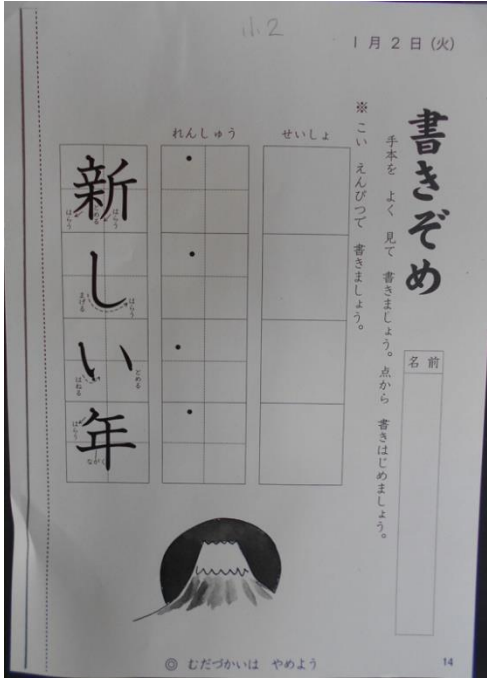 小2
1月2日(火)
書きぞめ
名前
手本を よく 見て 書きましょう。点から 書きはじめましょう。
※ こい えんぴつで 書きましょう。
せいしょ
れんしゅう
新しい年
はらう
とめる
はらう
はらう
まげる
とめる
はねる
はらう
ながく
◎ むだづかいは やめよう
14